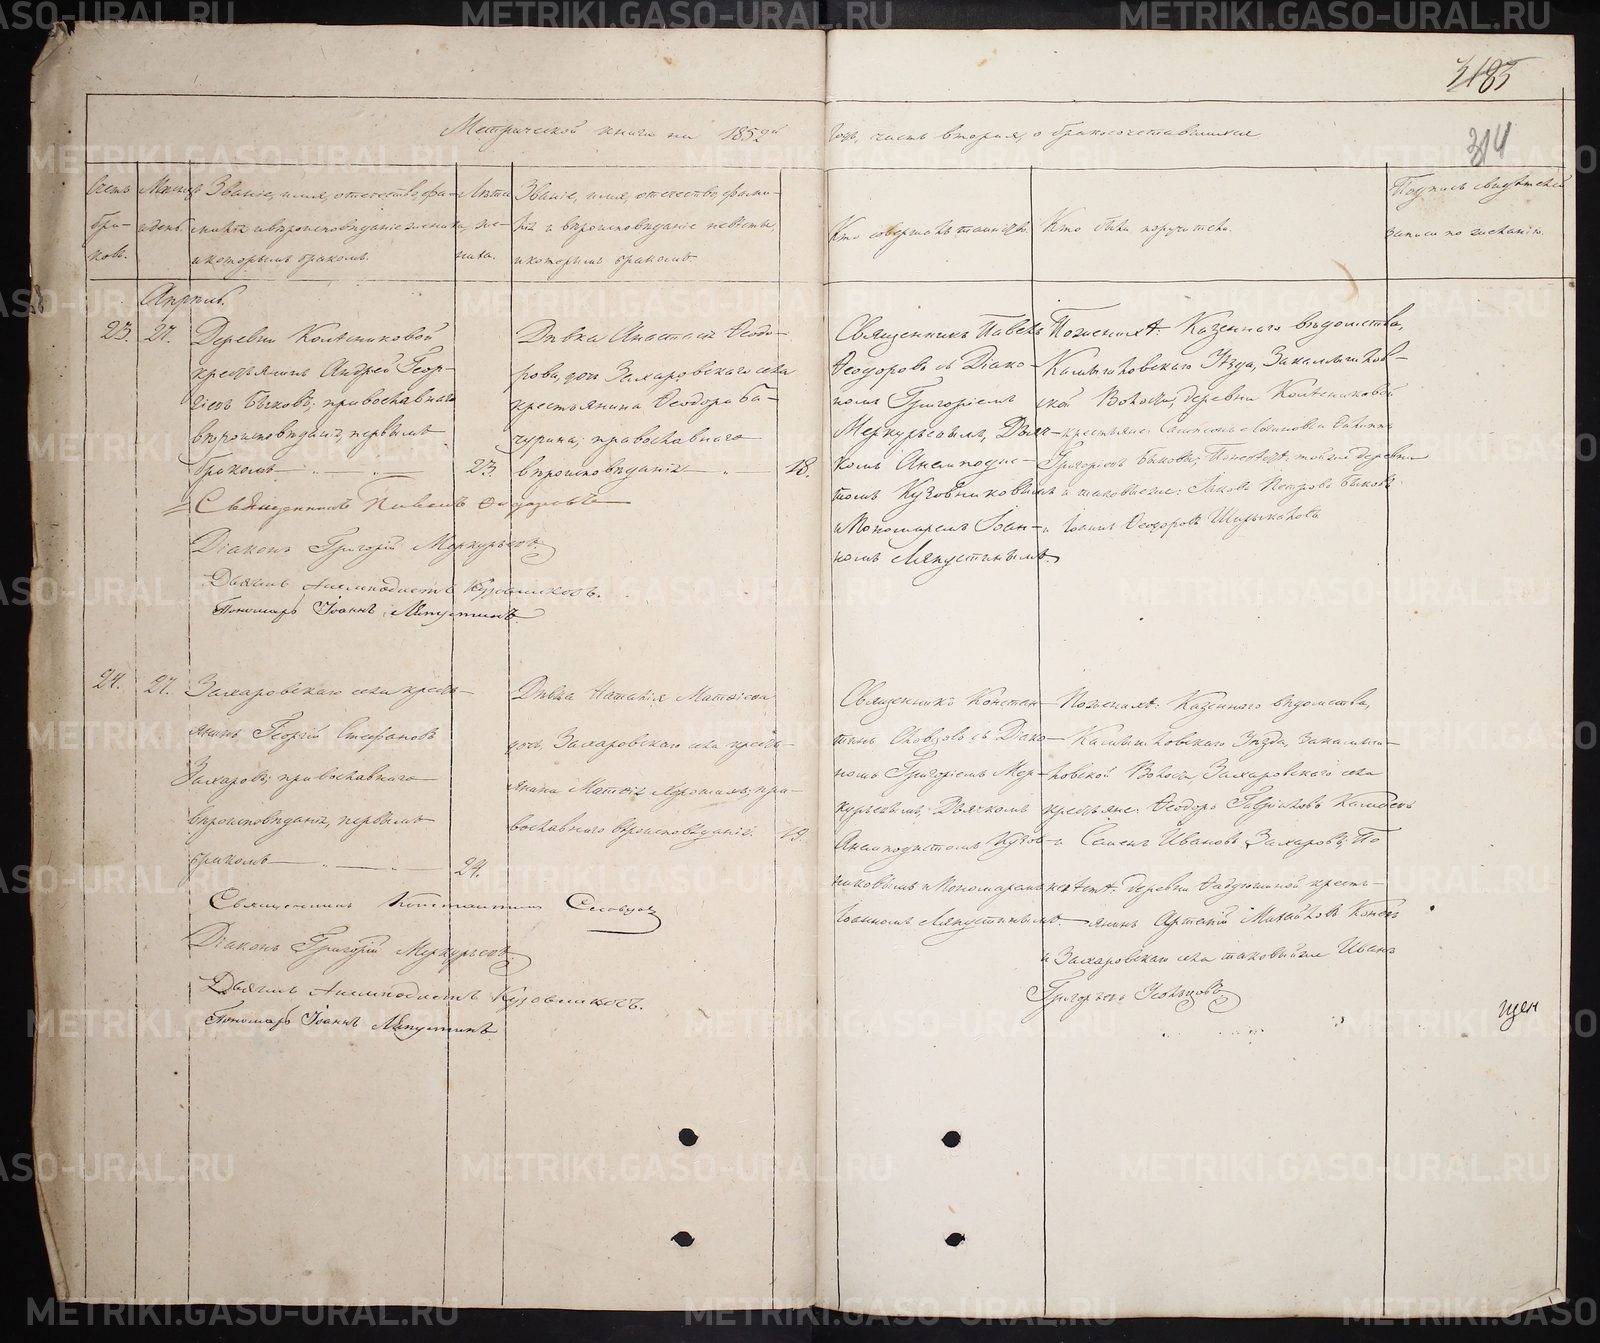 314
Метрической книги на 1852й
годъ, часть вторая, о бракосочетавшихся
Счетъ браковъ.
Мѣсяцъ и день.
Званіе, имя, отечество, фамилія и вѣроисповѣданіе жениха, и которымъ бракомъ.
Лѣта жениха.
Званіе, имя, отечество, фамилія и вѣроисповѣданіе невѣсты, и которымъ бракомъ.
Кто совершалъ таинство.
Кто были поручители.
Подпись свидѣтелей записи по желанію.
Апрѣль.
23. 27.
Деревни Колѣсниковой
крестьянинъ Андрей Геор-
гіевъ Быковъ; православнаго
вѣроисповѣданія, первымъ
бракомъ 23.
Дѣвка Анастасія Ѳеодо-
рова, дочь Захаровскаго села
крестьянина Ѳеодора Ба-
чурина; православнаго
вѣроисповѣданія 18.
Священникъ Павелъ
Ѳеодоровъ съ Діако-
номъ Григоріемъ
Меркурьевымъ, Дьяч-
комъ Анемподис-
томъ Кузовниковымъ
и Пономаремъ Іоан-
номъ Ляпустинымъ.
По женихѣ: Казеннаго вѣдомства,
Камышловскаго Уѣзда, Закамышлов-
ской Волости, деревни Колѣсниковой
крестьяне:
Григорьевъ Быковы; По невѣстѣ: той же деревни
и таковые же: Іаковъ Петровъ Быковъ
и Іоаннъ Ѳеодоровъ
Священникъ Павелъ Ѳеодоровъ
Діаконъ Григорій Меркурьевъ
Дьячекъ Анемподистъ Кузовниковъ.
Пономарь Іоаннъ Ляпустинъ
24. 27.
Захаровскаго села кресть-
янинъ Георгій Стефановъ
Захаровъ; православнаго
вѣроисповѣданія, первымъ
бракомъ 24.
Дѣвка Наталія Матѳіева
дочь, Захаровскаго села кресть-
янина Матѳія; пра-
вославнаго вѣроисповѣданія. 19.
Священникъ Констан-
тинъ Словцовъ съ Діако-
номъ Григоріемъ Мер-
курьевымъ, Дьячкомъ
Анемподистомъ Кузов-
никовымъ и Пономаремъ
Іоанномъ Ляпустинымъ.
По женихѣ: Казеннаго вѣдомства,
Камышловскаго Уѣзда, Закамыш-
ловской Волости Захаровскаго села
крестьяне: Ѳеодоръ Гавриловъ
и Семенъ Ивановъ Захаровъ; По
невѣстѣ: деревни кресть-
янинъ Артемій Михайловъ
и Захаровскаго села таковый же Иванъ
Григорьевъ
Священникъ Константинъ Словцовъ
Діаконъ Григорій Меркурьевъ
Дьячекъ Анемподистъ Кузовниковъ.
Пономарь Іоаннъ Ляпустинъ
щен
METRIKI.GASO-URAL.RU